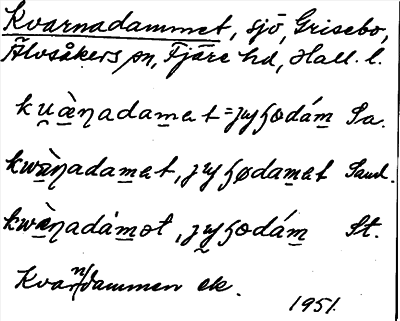 Kvarnadammet, sjö, Grisebo,
Älvsåkers sn, Fjäre hd, Hall. l.
ku̯àŋadamet = ɟyɧodám Sa.
kwàŋadamat, ɟyɧødamet Sand.
kwàŋadámot, ɟyɧodám St.
Kvarn/dammen ek.
1951.